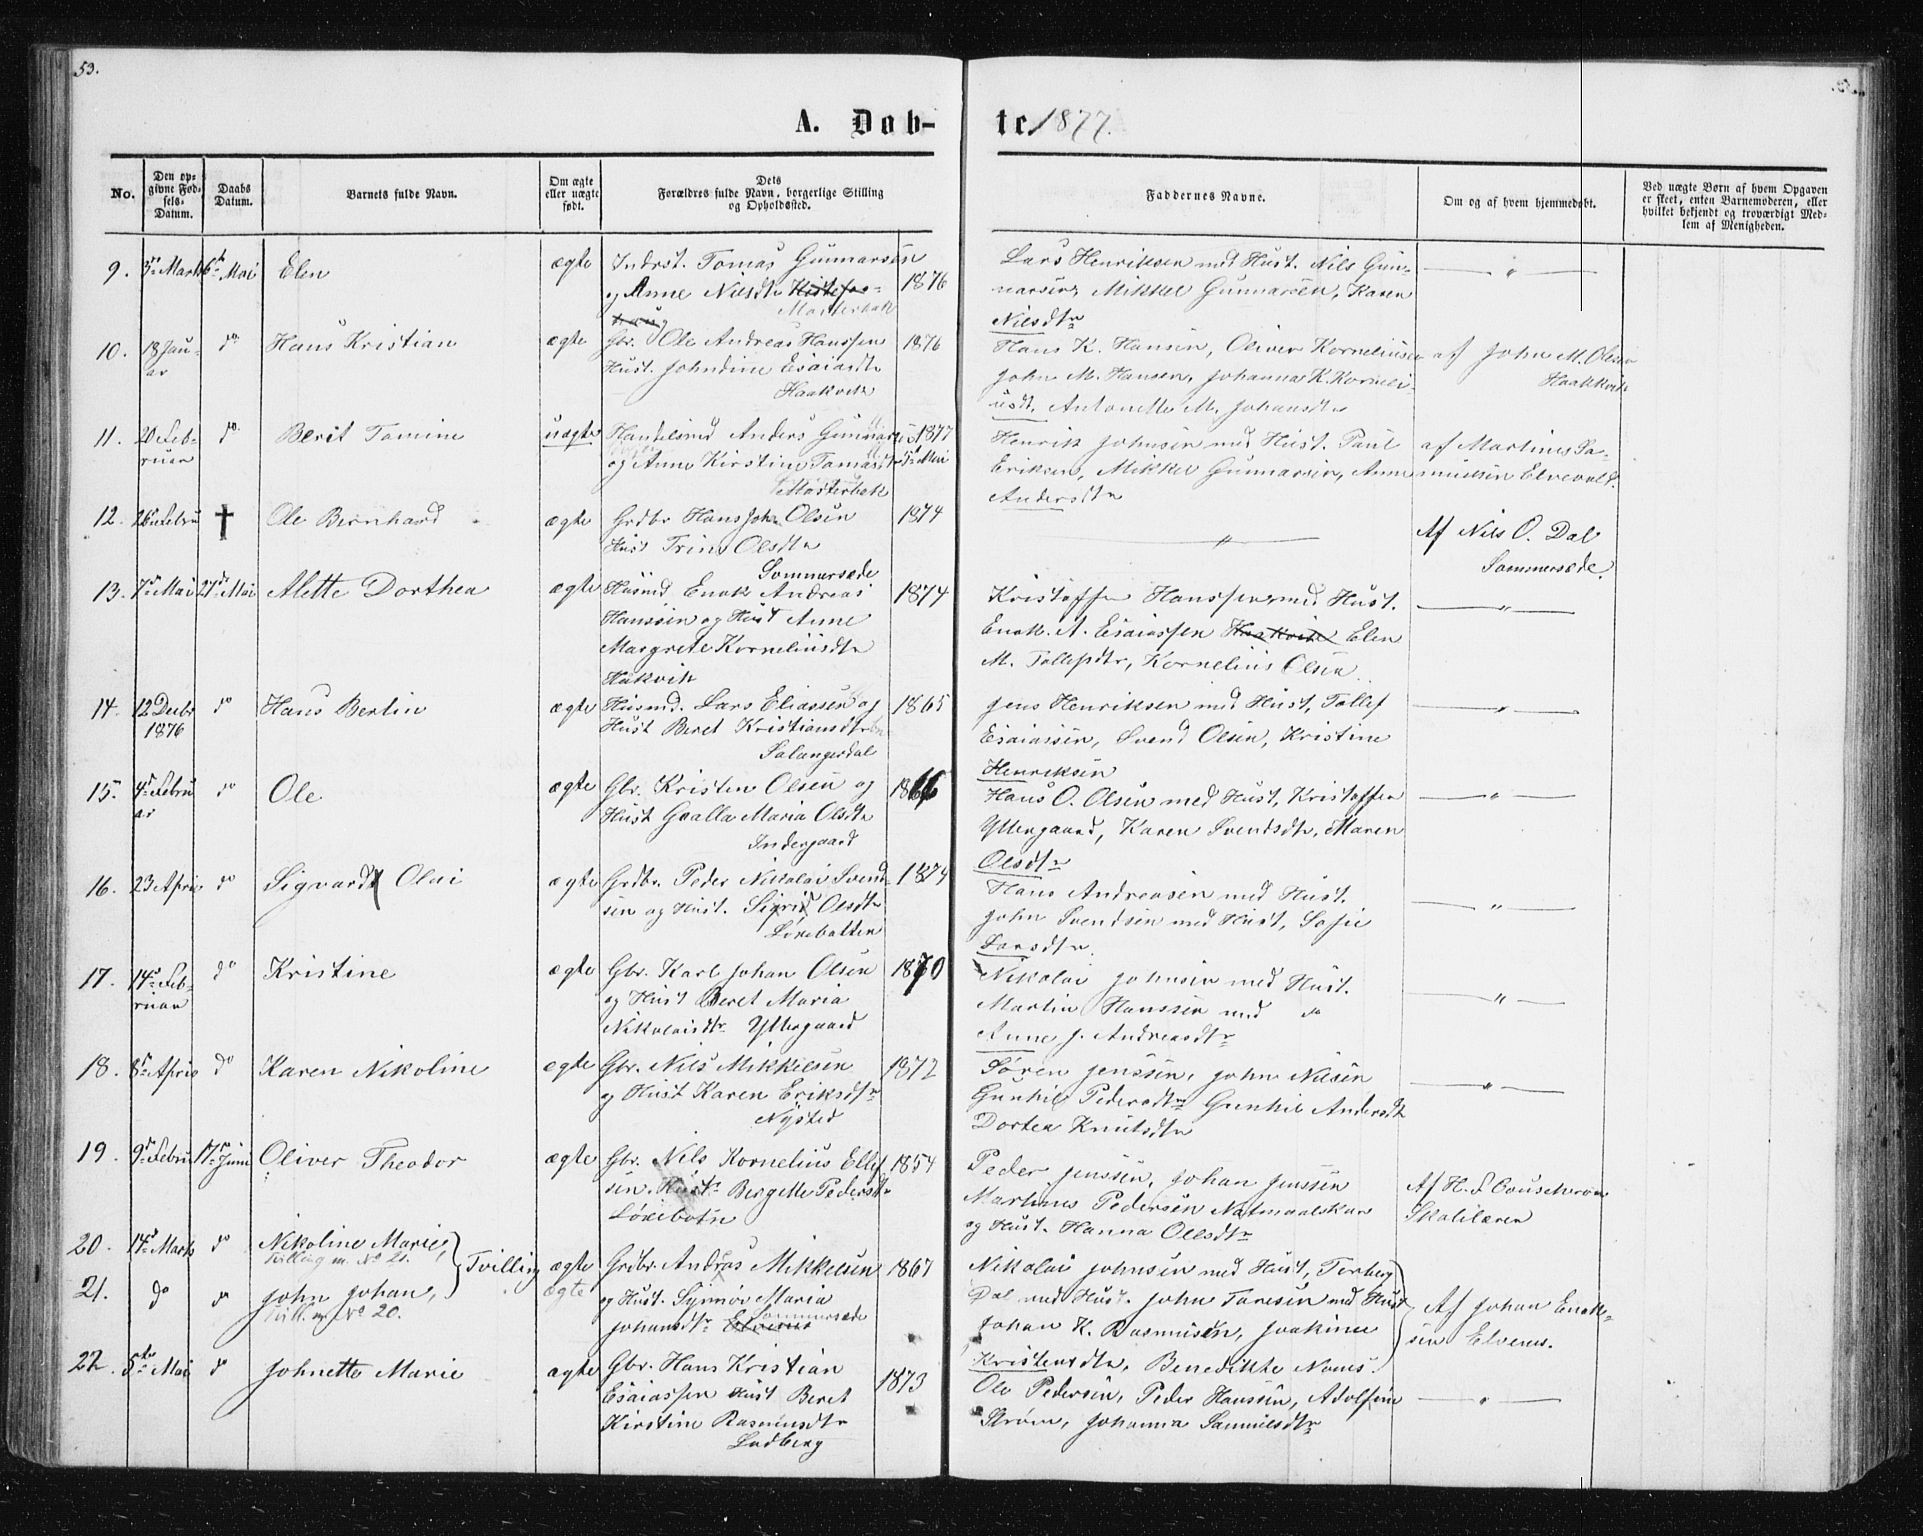 53.
A. Døb-
te 1877.
No.
Den op-
givne Fød-
sels-
Datum.
Daabs
Datum.
Barnets fulde Navn.
Om ægte
eller uægte
født.
Dets
Forældres fulde Navn, borgerlige Stilling
og Opholdssted.
Faddernes Navne.
Om og af hvem hjemmedøbt.
Ved uægte Børn af hvem Opgaven
er skeet, enten Barnemoderen, eller
hvilket bekjendt og troværdigt Med-
lem af Menigheden.
9. 3die Marts 6te Mai Elen ægte Indrst. Tomas Gunnarsen
og Anne Nilsdtr 1876
Mosterbak
Lars Henriksen med Hust. Nils Gun-
narsen, Mikkel Gunnarsen, Karen
Nilsdtr
10. 18 Janu-
ar do Hans Kristian ægte Gbr. Ole Andreas Hanssen 1876
Hust. Johndine Esaiasdtr
Haakvik
Hans K. Hansen, Oliver Korneliusen
John M. Hansen, Johanna K. Korneli-
usdt, Antonette M. Johansdtr
af John M. Olsen
Haakvik
11. 20 Feb-
ruar do Berit Tomine uægte Handelsmd Anders Gunnars 1877
og Anne Kirstine Tomasdtr 5te Mai
Mosterbak
Henrik Johnsen med Hust. Paul
Eriksen, Mikkel Gunnarsen, Anne
Andersdtr
af Martines Sa-
muelsen Elvevold.
12. 26de Febru † Ole Bernhard ægte Grdbr Hans Joh. Olsen 1874
Hust Trine Olsdtr
Sommersæde
Af Nils O. Dal
Sommersæde.
13. 7de Mai 27de Mai Alette Dorthea ægte Husmd Enok Andreas 1874
Hanssen og Hust Anne
Margrete Korneliusdtr
Hakvik
Kristoffer Hanssen med Hust.
Enok. A. Esaiassen Haakvik Elen
M. Tollefsdtr, Kornelius Olsen
14. 12 Decbr
1876 do Hans Berlin ægte Husmd. Lars Eliassen og 1865
Hust Beret Kristiansdtr
Salangsdal
Jens Henriksen med Hust, Tollef
Esaiassen, Svend Olsen, Kristine
Henriksen
15. 4de Febru
ar do Ole ægte Gbr. Kristen Olsen og 1866
Hust Gralla Maria Olsdtr
Indergaard
Hans O. Olsen med Hust, Kristoffer
Yttergaard, Karen Svendsdtr, Maren
Olsdtr
16. 23 April do Sigvard Olai ægte Grdbr. Peder Nikolai Svend- 1874
sen og Hust. Sigrid Olsdtr
Loxebotten
Hans Andreasen med Hust.
John Svendsen med Hust, Sofie
Larsdtr.
17. 14de Feb-
ruar do Kristine ægte Gbr. Karl Johan Olsen 1870
og Hust Beret Maria
Nikolaisdtr Yttergaard
Nikolai Johnsen med Hust.
Martin Hanssen med do
Anne J. Andreasdtr
18. 8de April do Karen Nikoline ægte Gbr. Nils Mikkelsen 1872
og Hust Karen Eriksdtr
Nysted
Søren Jenssen, John Nilsen
Gunhil Pedersdtr Gunhil Andersdt
Dortea Knutsdtr
19. 9de Febru 17de Juni Oliver Theodor ægte Gbr. Nils Kornelius Ellef 1854
sen. Hust Bergette Pedersdtr
Loxebotn
Peder Jenssen, Johan Jenssen
Martines Pedersen Natmaalskar
og Hust. Hanna Ollsdtr
Af H.
Skolelærer
20. 14de Marts do Nikoline Marie,
Tvilling m. No 21.
Tvilling ægte Grdbr. Andreas Mikkelsen 1867
21. do do John Johan,
Tvill. m. No 20.
ægte og Hust. Synnøv Maria
Johansdtr Elvenes Sommersæde
Nikolai Johnsen med Hust, Torberg
Dal med Hust. John Toresen med Hust
Johan K. Rasmusen, Joakime
Kristensdtr, Benedikte Næss.
Af Johan Enok-
sen Elvenes.
22. 5te Mai do Johnette Marie ægte Gbr. Hans Kristian
Esaiassen Hust Beret 1873
Kirstine Rasmusdtr
Ludberg
Ole Pedersen, Peder Hanssen, Adolfine
Strøm, Johanna Samuelsdtr